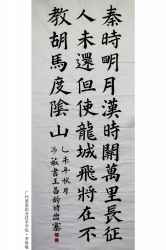 秦時明月漢時關萬里長征
人未還但使龍城飛將在不
教胡馬度陰山
乙未年秋月
書王昌齡詩出塞